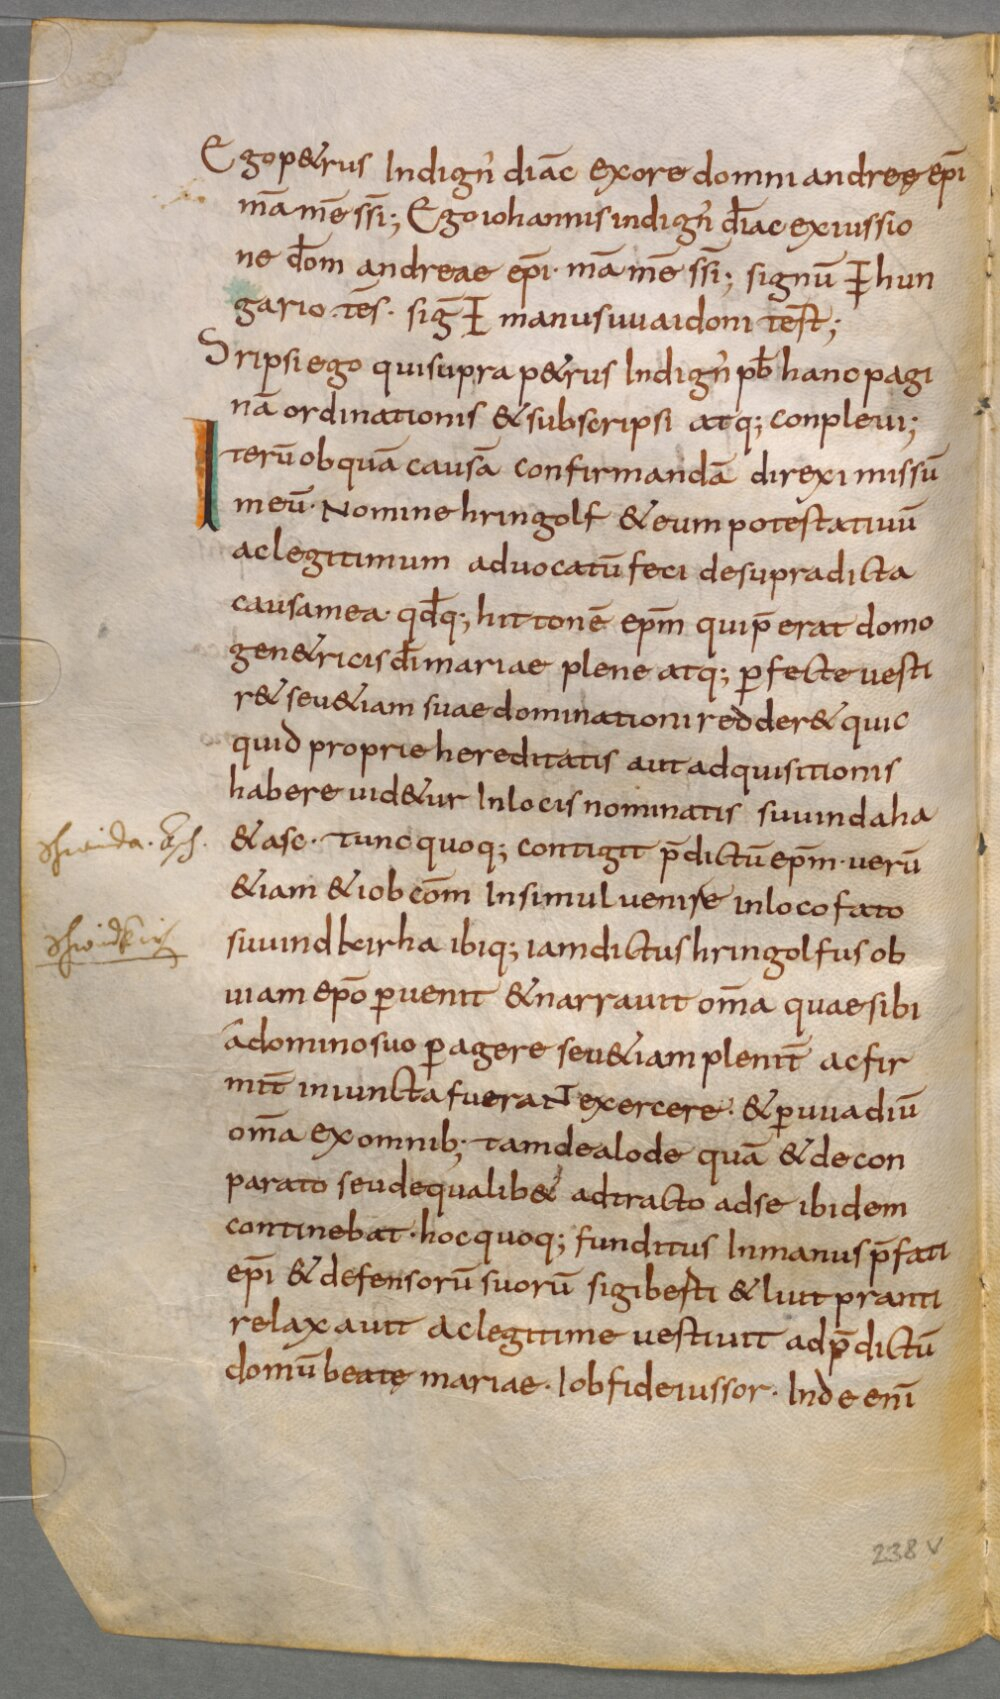 Ego p&rus Indign̄ diāc exore domni andreę ep̄i
mā mē ss̄i; Ego iohannis indign̄ d̄iac exiussio
ne d̄om andreae ep̄i· mā mē ss̄i; signū ‡ hun
gario. tēs· siḡ ‡ manus uuaidoni tes̄t;
Sripsi ego qui supra p&rus Indign̄ pb̄ hanc pagi
nā ordinationis & subscripsi atq; conpleui;
Iterū ob quā causā confirmandā direxi missū
meū· Nomine hringolf & eum potestatiuū
ac legitimum aduocatū feci de supradicta
causa mea· qd̄q; hittonē ep̄m qui p̄erat domo
gen&ricis d̄i mariae plene atq; ꝑfecte uesti
r& seu &iam suae dominationi redder& quic
quid proprie hereditatis aut adquisitionis
habere uid&ur In locis nominatis suuindaha
& asc· tunc quoq; contigit p̄dictū ep̄m· uerū
&iam & iob cōm Insimul uenire in loco fato
suuindkirha ibiq; iamdictus hringolfus ob
uiam ep̄o ꝑuenit & narrauit om̄a quae sibi
a domino suo ꝑagere seu &iam plenit̄ ac fir
mit̄ iniuncta fuerat exercere· & ꝑ uuadiū
om̄a ex omnib; tam de alode quā & de con
parato seu de qualib& adtracto ad se ibidem
continebat· hoc quoq; funditus In manus p̄fati
ep̄i & defensorū suorū sigibesti & liutpranti
relaxauit ac legitime uestiuit ad p̄dictū
domū beatę mariae· Iob fideiussor· Inde enī
Schwinda.
Schwindkirch
238 v